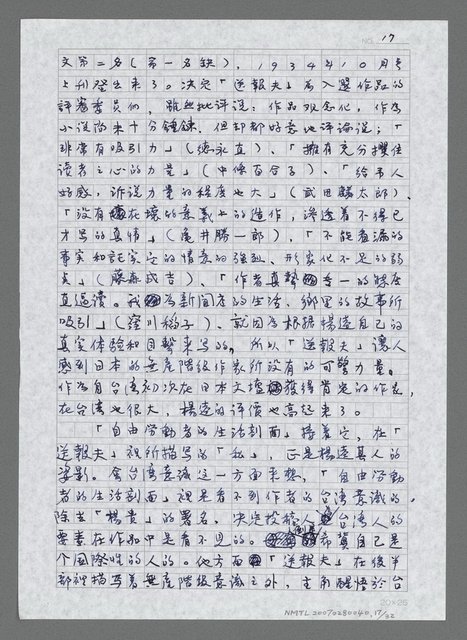 NO. 17
文第二名(第一名缺),1934年10月号
上刊登出来了。決定「送報夫」為入選作品的
評審委員們,雖然批評説:作品观念化,作為
小説尚未十分鍾鍊,但却都好意地評論説:「
非常有吸引力」(徳永直)、「擁有充分攫住
讀者之心的力量」(中條百合子)、「給予人
好感,訴説力量的程度也大」(武田麟太郎)、
「没有 在壊的意義上的造作,滲透着不得已
才写的真情」(亀井勝一郎)、「不能看漏的
事実和託寄它的情意的強烈、形象化不足的弱
点」(藤森成吉)、「作者真摯 专一的態度
真過癮。我 為新聞店的生活、鄉里的故事所
吸引」(窪川稲子)、就因為根据楊逵自己的
真実体驗和目擊来写的,所以「送報夫」讓人
感到日本的無産階級作家所没有的可驚力量。
作為自台湾初次在日本文壇 獲得肯定的作家,
在台湾也很大,楊逵的評價也高起来了。
「自由労動者的生活剖面」接着它,在「
送報夫」裡所描写的「私」,正是楊逵其人的
姿影。舍台湾意識這一方面来想,「自由労動
者的生活剖面」裡是看不到作者的台湾意識的,
除去「楊貴」的署名,決定投稿人 台湾人的
要素在作品中是看不見的。 希冀自己是
个国際性的人的。他方面 「送報夫」在後半
部裡描写着無産階級意識之外,主角醒悟於台
20×25
NMTL20070280040,17/32